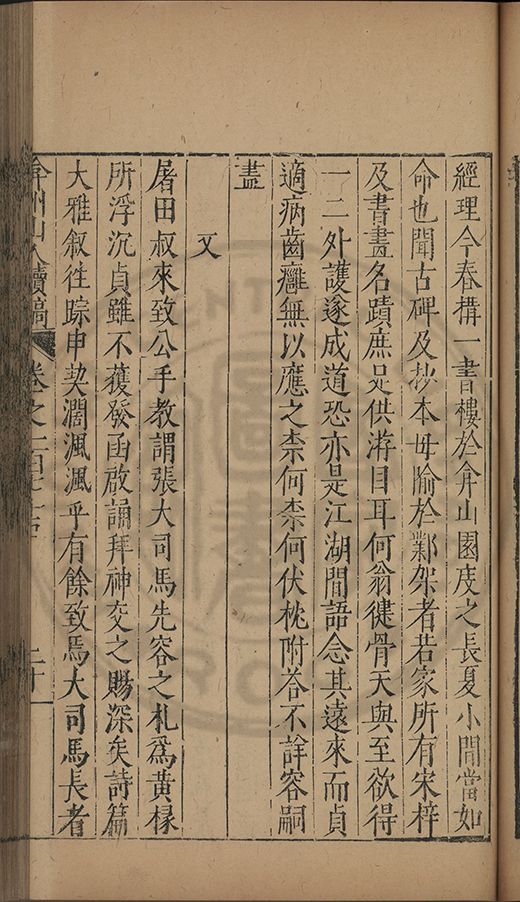 經理今春搆一書樓於弇山園庋之長夏小間當如
命也聞古碑及抄本毋踰於鄴架者若家所有宋梓
及書畫名蹟庶足供游目耳何翁健骨天與至欲得
一二外護遂成道恐亦是江湖間語念其遠來而貞
適病齒癰無以應之柰何柰何伏枕附荅不詳容嗣
盡
又
屠田叔來致公手教謂張大司馬先容之札為黃椽
所浮沉貞雖不獲發函啟誦拜神交之賜深矣詩篇
大雅叙往踪申契濶渢渢乎有餘致焉大司馬長者
弇州山人續稿 卷之一百七十
二十一